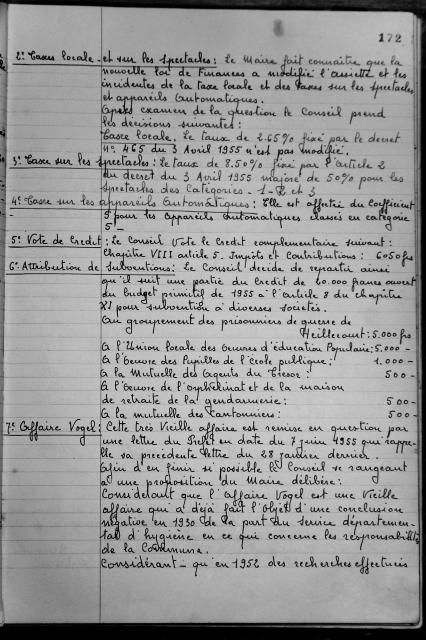 172
2º Taxes locale et sur les spectacles : Le Maire fait connaître que la
nouvelle loi de Finances a modifié l'assiette et les
incidentes de la taxe locale et des taxes sur les spectacles
et appareils automatiques.
Après examen de la question le Conseil prend
les décisions suivantes :
Taxe locale. Le taux de 2.65% fixé par le decret
Nº 465 du 3 Avril 1955 n'est pas modifié.
3º Taxe sur les spectacles : Le taux de 8.50% fixé par l'article 2
du decret du 3 Avril 1955 majoré de 50% pour les
spectacles des Catégories - 1 - 2 et 3
4º Taxe sur les appareils Automatiques : Elle est affectée du Coefficient
5 pour les appareils automatiques classés en catégorie
5 -
5º Vote de Credit : Le Conseil vote le Credit complementaire suivant :
Chapitre VIII article 5. Impôts et Contributions : 6050 frs
6º Attribution de subventions : Le Conseil décide de repartir ainsi
qu'il suit une partie du Credit de 60.000 francs ouvert
du budget primitif de 1955 à l'article 8 du chapitre
XI pour subvention à diverses societés.
Au groupement des prisonniers de guerre de
Heillecourt : 5.000 frs
A l'Union locale des Oeuvres d'éducation Populaire : 5.000 -
A l'Oeuvre des Pupilles de l'école publique : 1.000 -
A la Mutuelle des Agents du Tresor : 500 -
A l'Oeuvre de l'orphelinat et de la maison
de retraite de la gendarmerie : 500 -
A la mutuelle des Cantonniers : 500 -
7º Affaire Vogel : Cette très vieille affaire est remise en question par
une lettre du Préfet en date du 7 juin 1955 qui rappe-
lle sa precedente lettre du 28 janvier dernier.
Afin d'en finir si possible le Conseil se rangeant
à une proposition du Maire délibère :
Considerant que l'affaire Vogel est une vieille
affaire qui a déjà fait l'objet d'une conclusion
négative en 1930 de la part du service départemen-
tal d'hygiène en ce qui concerne les responsabilités
de la Commune.
Considérant - qu'en 1952 des recherches effectuées